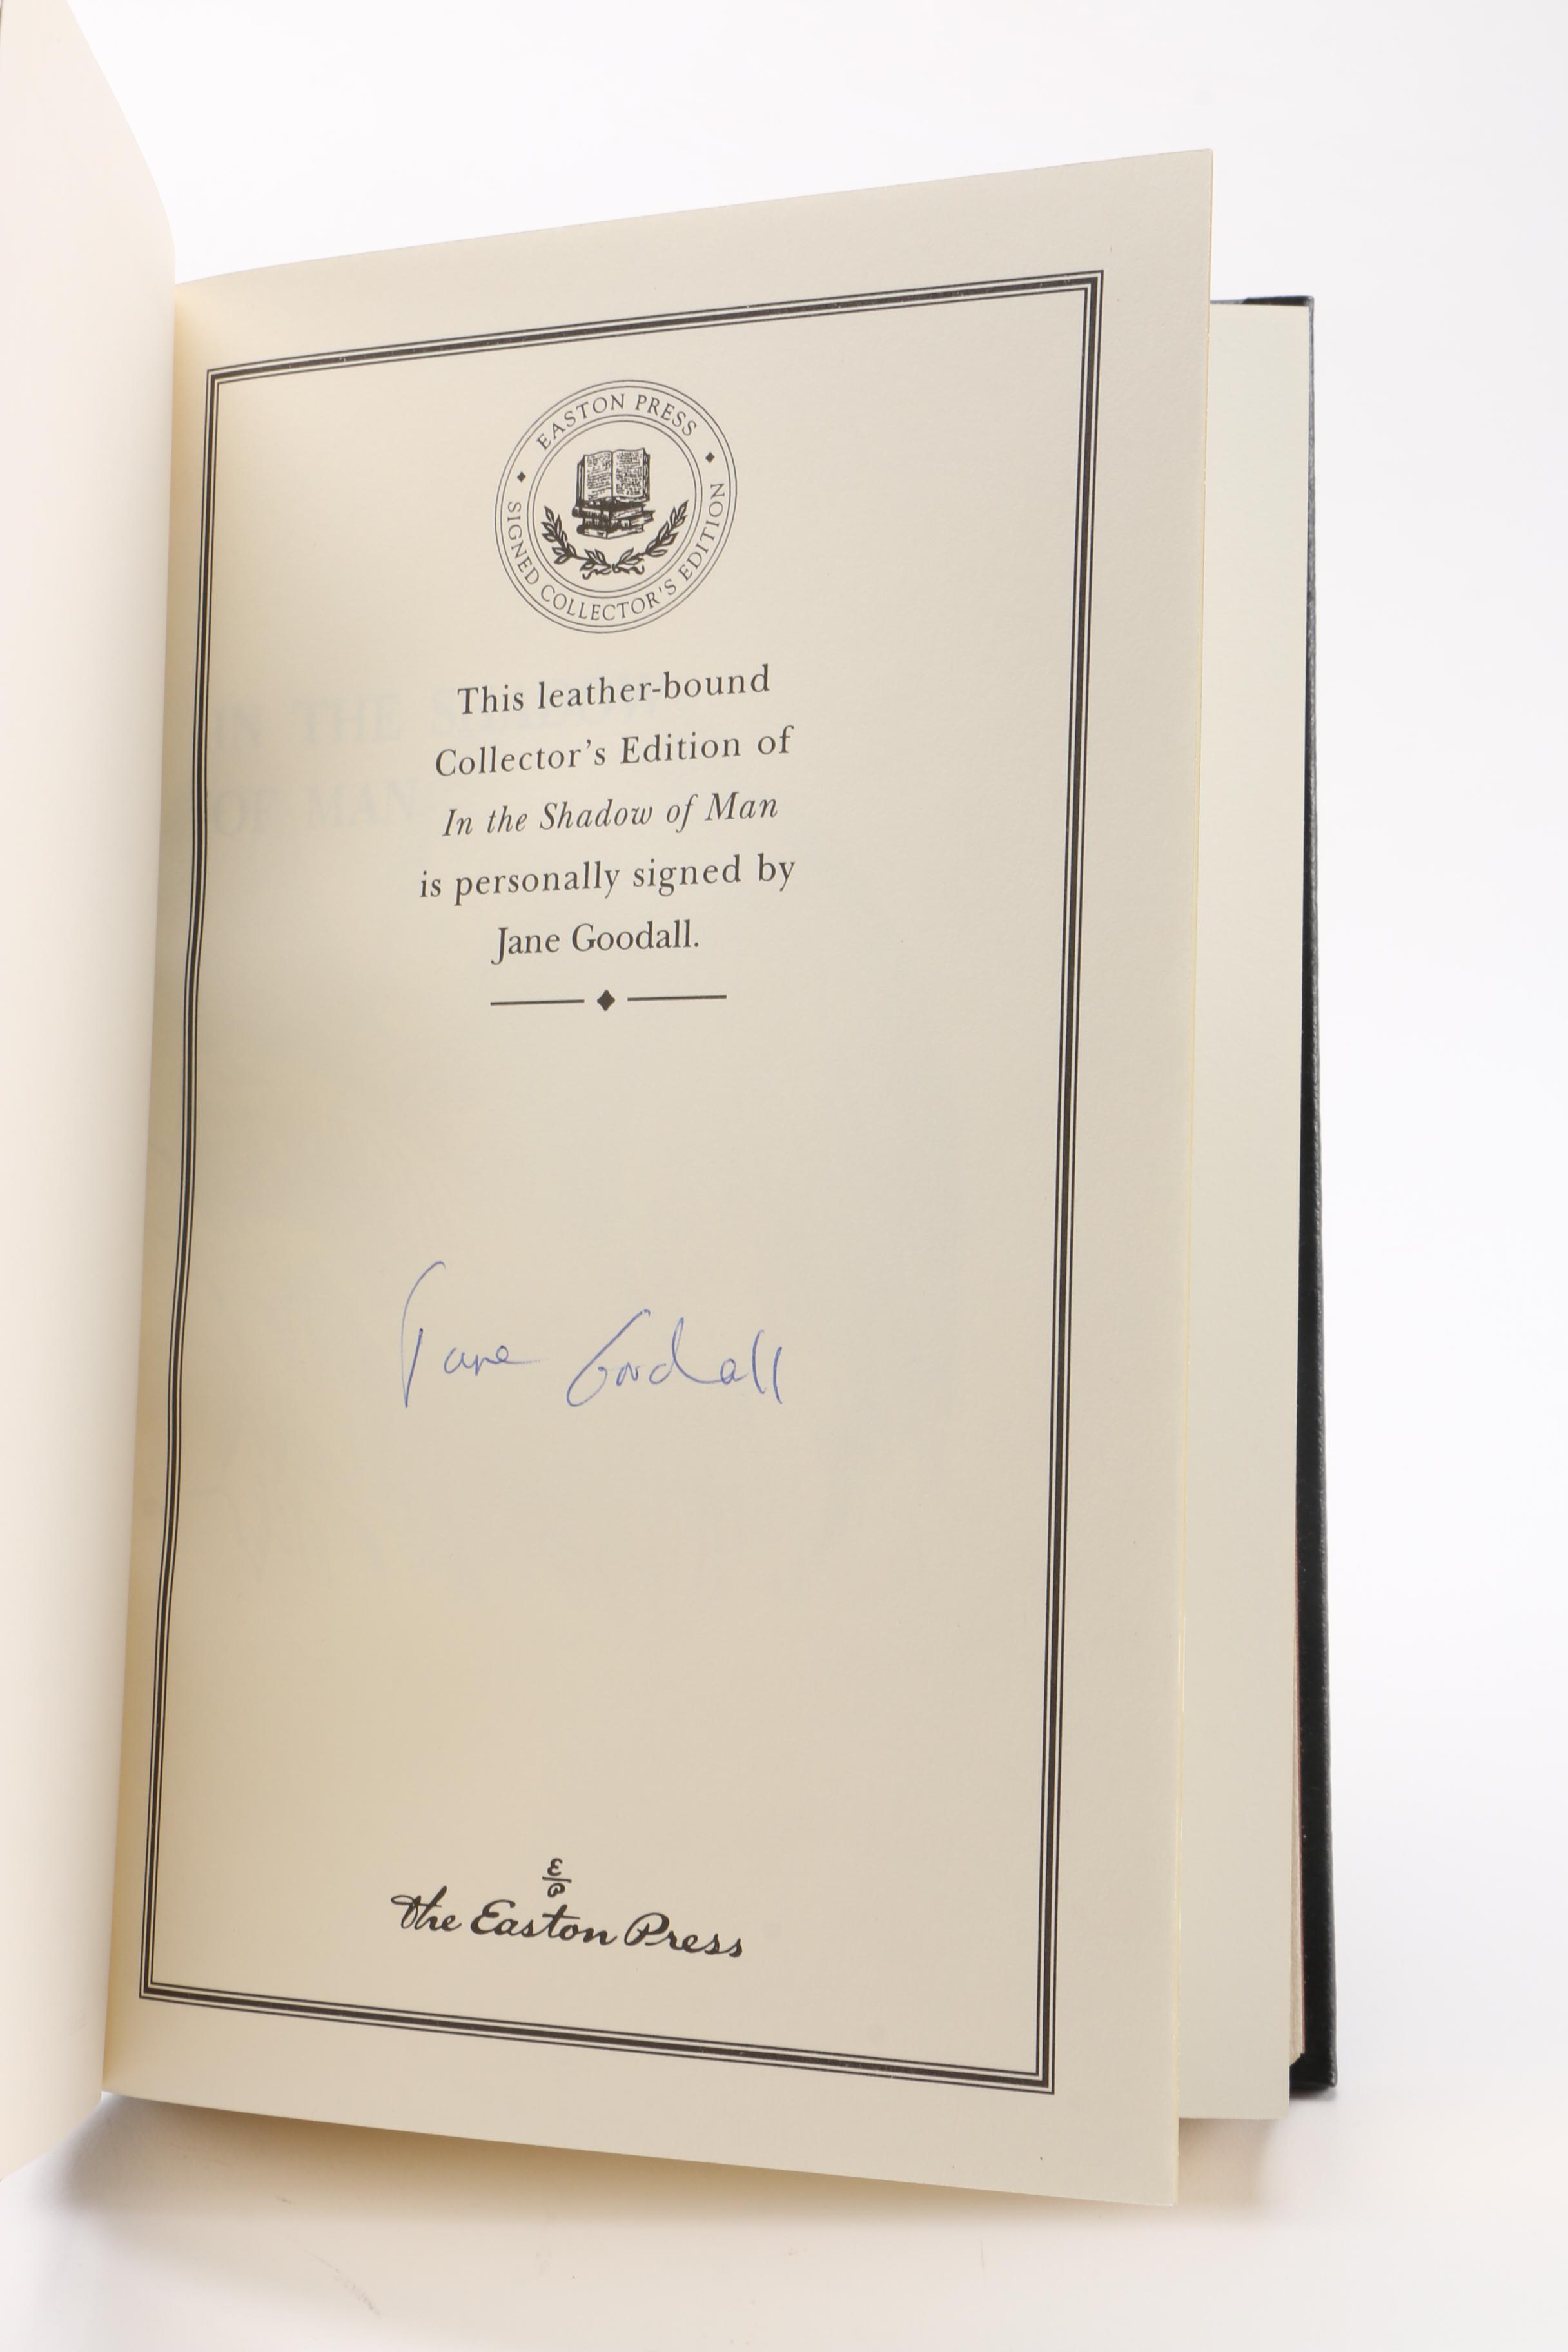 EASTON PRESS
SIGNED COLLECTOR'S EDITION
This leather-bound
Collector's Edition of
In the Shadow of Man
is personally signed by
Jane Goodall.
Jane Goodall
E
P
The Easton Press